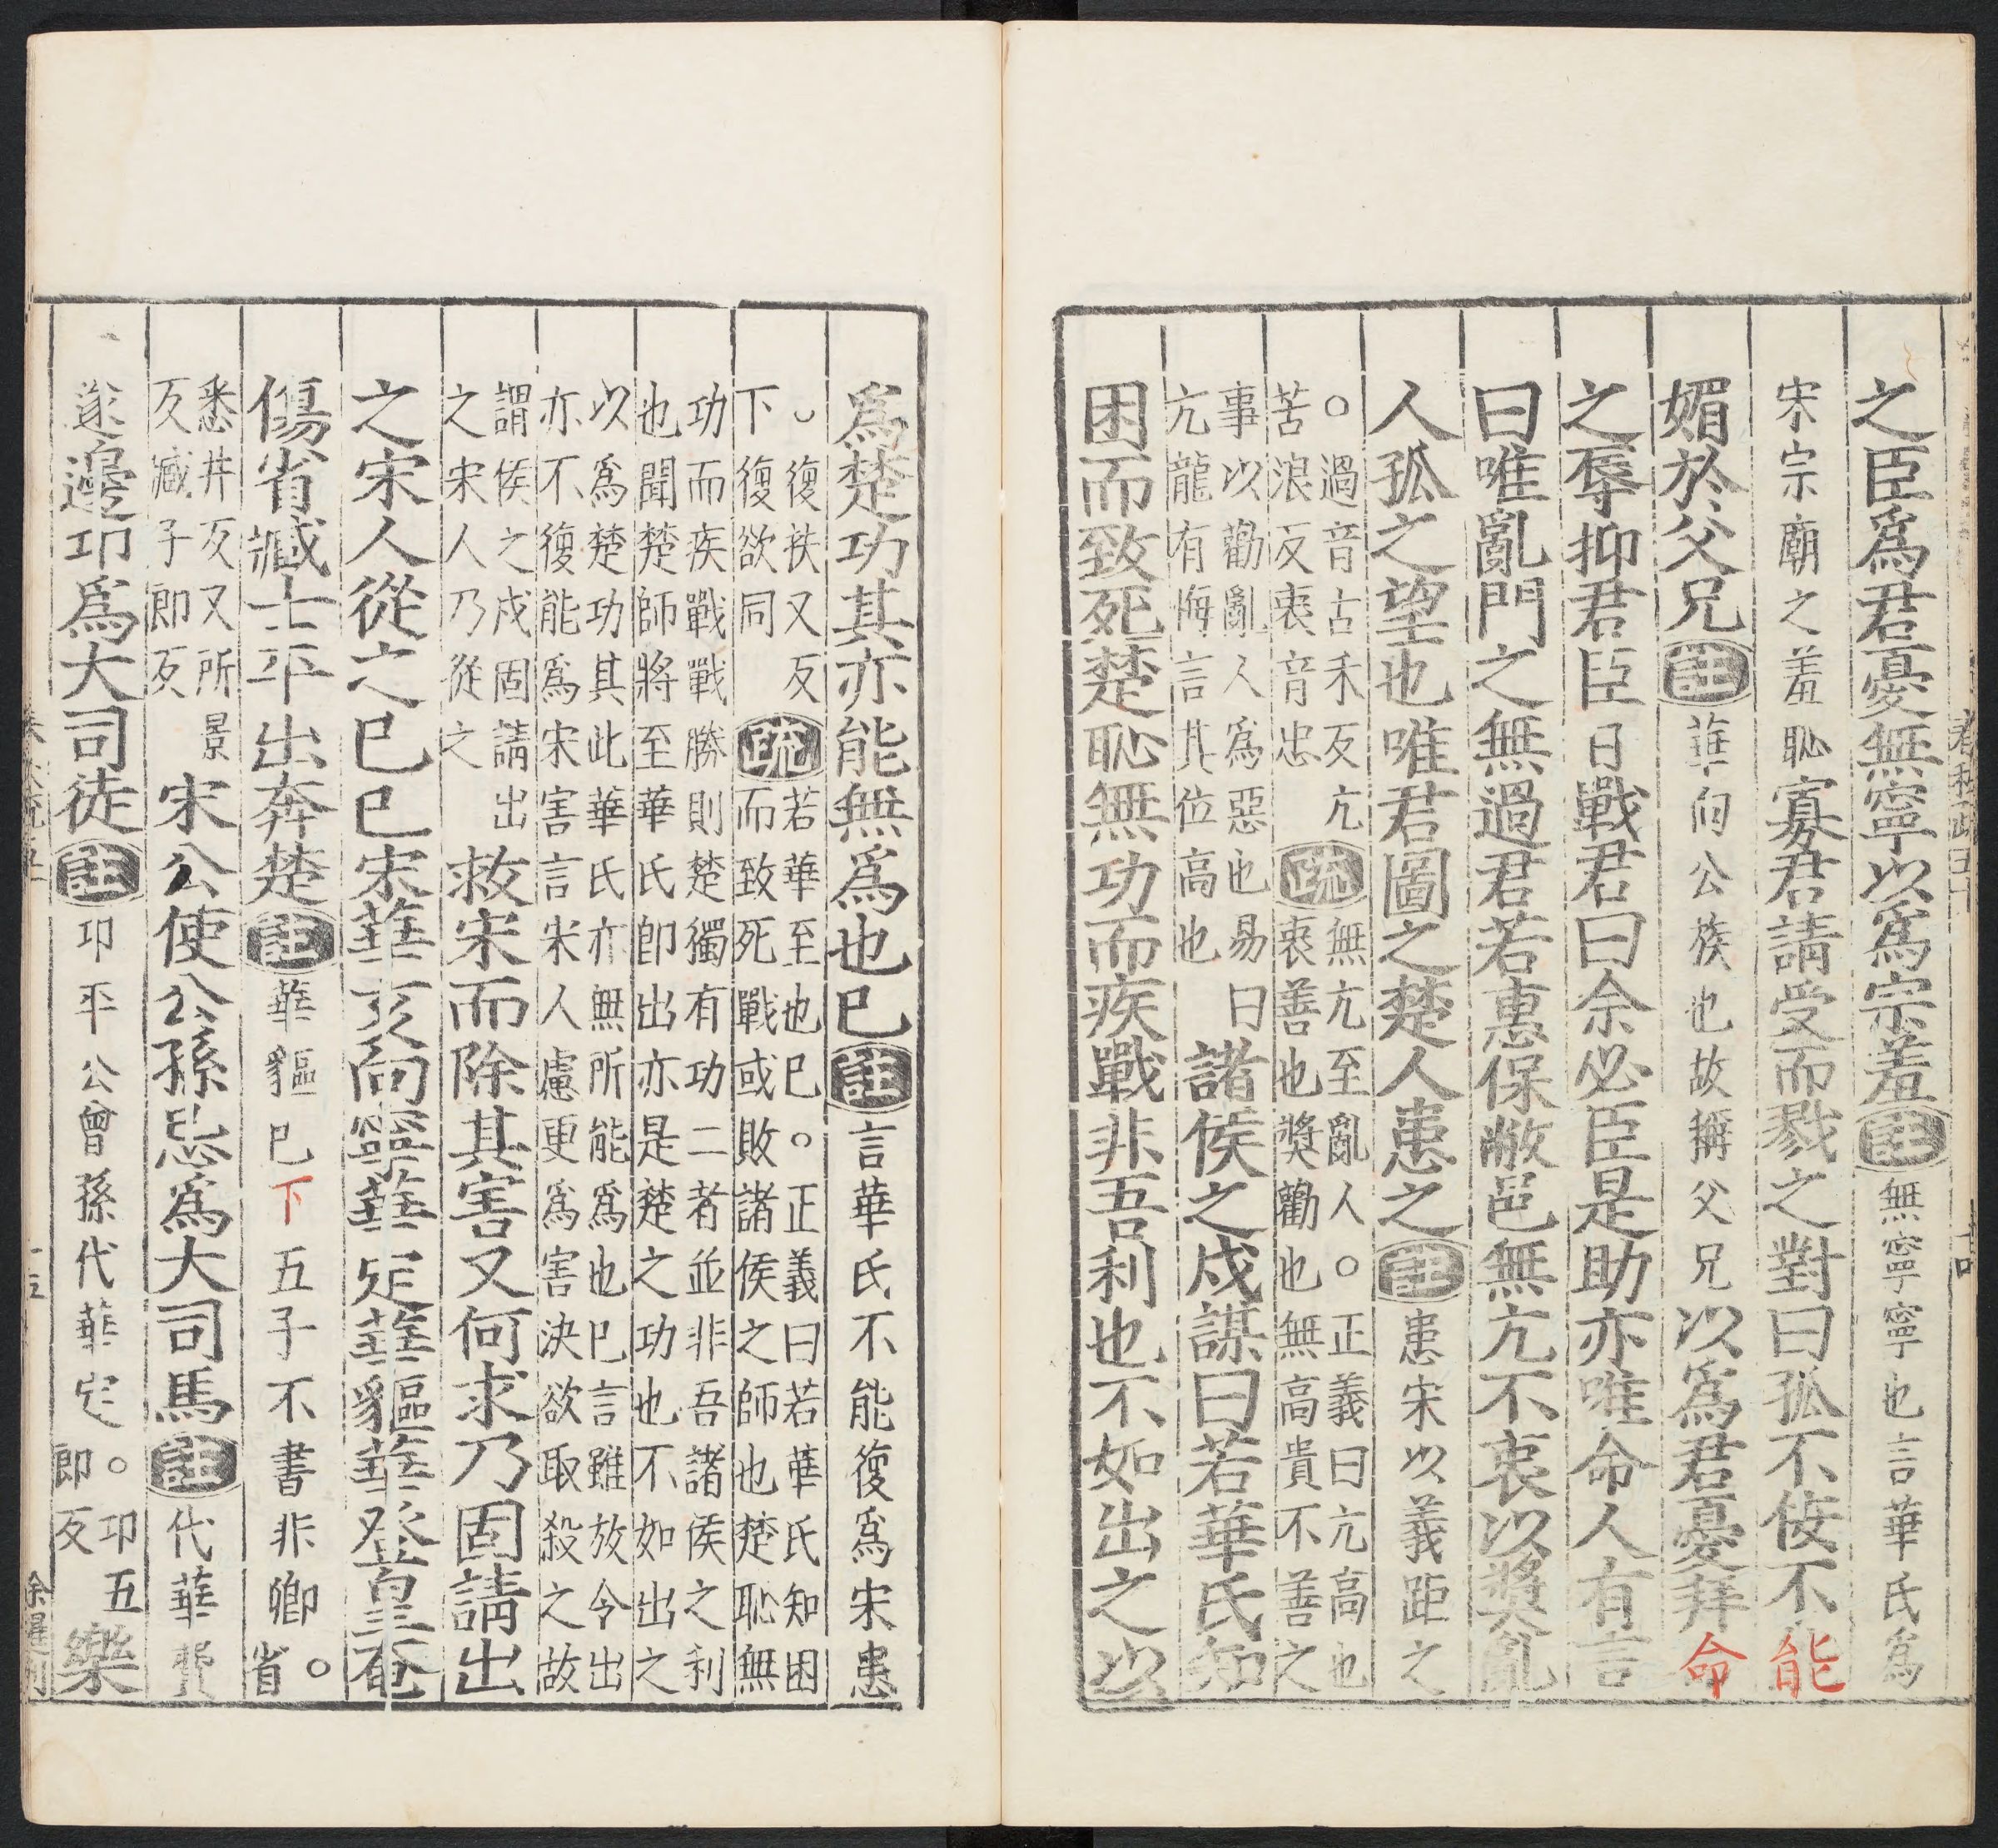 之臣爲君憂無寧以爲宗羞註無寧寧也言華氏爲
宋宗廟之羞恥寡君請受而戮之對曰孤不佞不能
媚於父兄註華向公族也故稱父兄以爲君憂拜命
之辱抑君臣日戰君曰余必臣是助亦唯命人有言
曰唯亂門之無過君若惠保敝邑無亢不衷以奬亂
人孤之望也唯君圖之楚人患之註患宋以義距之
○過音古禾反亢
苦浪反衷音忠
疏
無亢至亂人○正義曰亢高也
衷善也奬勸也無高貴不善之
事以勸亂人爲惡也易曰
亢龍有悔言其位高也
諸侯之戍謀曰若華氏知
困而致死楚恥無功而疾戰非吾利也不如出之以
爲楚功其亦能無爲也巳註言華氏不能復爲宋患
○復扶又反
下復欲同
疏
若華至也巳○正義曰若華氏知困
而致死戰或敗諸侯之師也楚恥無
功而疾戰戰勝則楚獨有功二者並非吾諸侯之利
也聞楚師將至華氏卽出亦是楚之功也不如出之
以爲楚功其此華氏亦無所能爲也巳言雖放令出
亦不復能爲宋害言宋人慮更爲害決欲取殺之故
謂侯之戍固請出
之宋人乃從之
救宋而除其害又何求乃固請出
之宋人從之巳巳宋華亥向寧華定華貙華登皇奄
傷省臧士平出奔楚註華貙巳下五子不書非卿○省
悉井反又所景
反臧子郎反
宋公使公孫忌爲大司馬註代華費
遂邊卬爲大司徒註卬平公曾孫代華定○卬五
郎反
樂